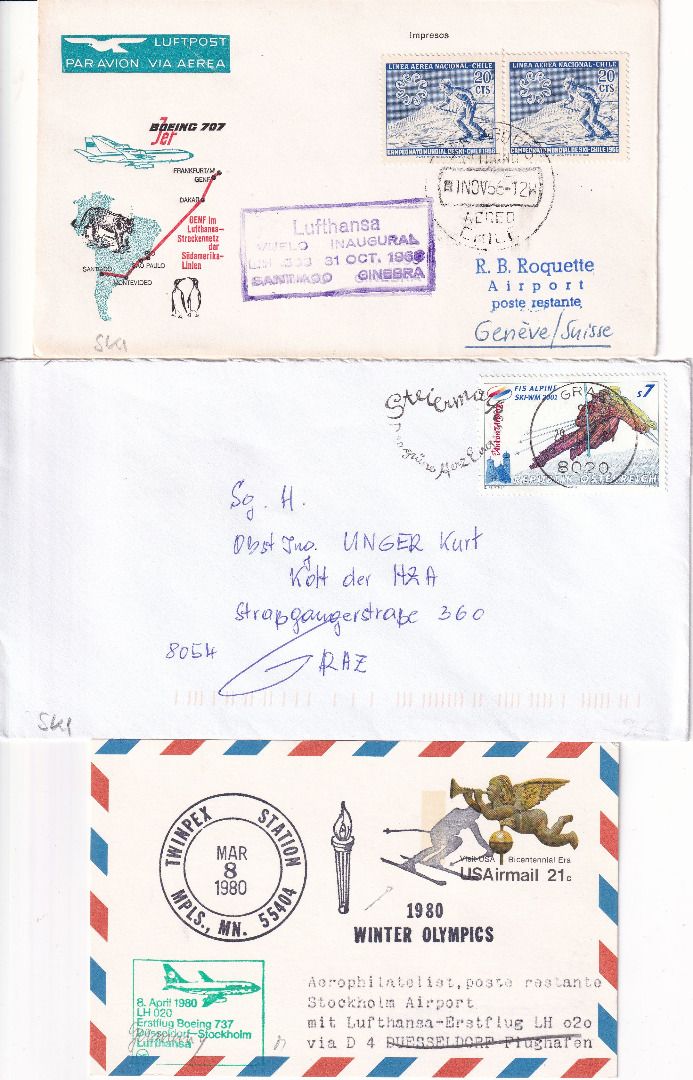 LUFTPOST
PAR AVION VIA AEREA
Impresos
LINEA AEREA NACIONAL-CHILE
20
CTS.
CAMPEONATO MUNDIAL DE SKI-CHILE 1966
LINEA AEREA NACIONAL-CHILE
20
CTS.
CAMPEONATO MUNDIAL DE SKI-CHILE 1966
BOEING 707
Jet
FRANKFURT/M
GENF
DAKAR
GENF im
Lufthansa-
Streckennetz
der
Südamerika-
Linien
SAO PAULO
SANTIAGO
MONTEVIDEO
Lufthansa
VUELO INAUGURAL
31 OCT. 1966
SANTIAGO GINEBRA
NOV 66-12
AEREO
R. B. Roquette
Airport
poste restante
Genève/Suisse
SKI
Steiermark
FIS ALPINE
SKI-WM 2001
S7
GRAZ
8020
REPUBLIK ÖSTERREICH
Sg. H.
Obst Ing. UNGER Kurt
Kdt der HZA
Straßgangerstraße 360
8054
GRAZ
SKI
TWINPEX STATION
MAR
8
1980
MPLS., MN. 55404
Visit USA Bicentennial Era
USAirmail 21c
1980
WINTER OLYMPICS
8. April 1980
LH 020
Erstflug Boeing 737
Düsseldorf-Stockholm
Lufthansa
Aerophilatelist, poste restante
Stockholm Airport
mit Lufthansa-Erstflug LH o2o
via D 4 DUESSELDORF Flughafen